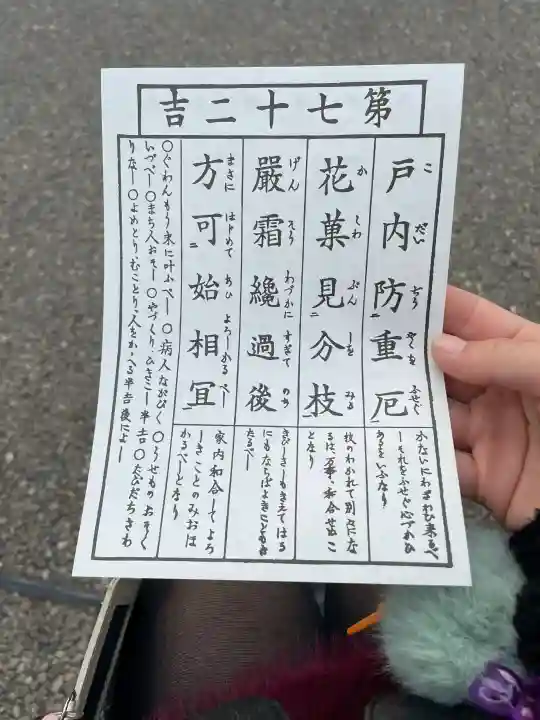 第七十二吉
戸内防重厄
こ だい ぢう やくを ふせぐ
かないにわざわひ来るべ
しそれをふせぐ心アかひ
あるをいふなり
花菓見分枝
か しわ ぶん しを みる
枝のわかれて別々にな
るは、万事、和合せぬこ
となり
嚴霜纔過後
げん そう わづかに すぎて のち
きびしきしもきえてはる
にもならばよきこともき
たるべし
方可始相冝
まさに はじめて あひ よろしかるべし
家内和合してよろ
しきことのみおほ
かるべしとなり
〇ぐわんもう末に叶ふべし〇病人ながびく〇うせものおそく
いづべし〇まち人おそし〇やづくり、ひきこし半吉〇たびだちさわ
りなし〇よめとり、むことり、人をかゝへる半吉後によし